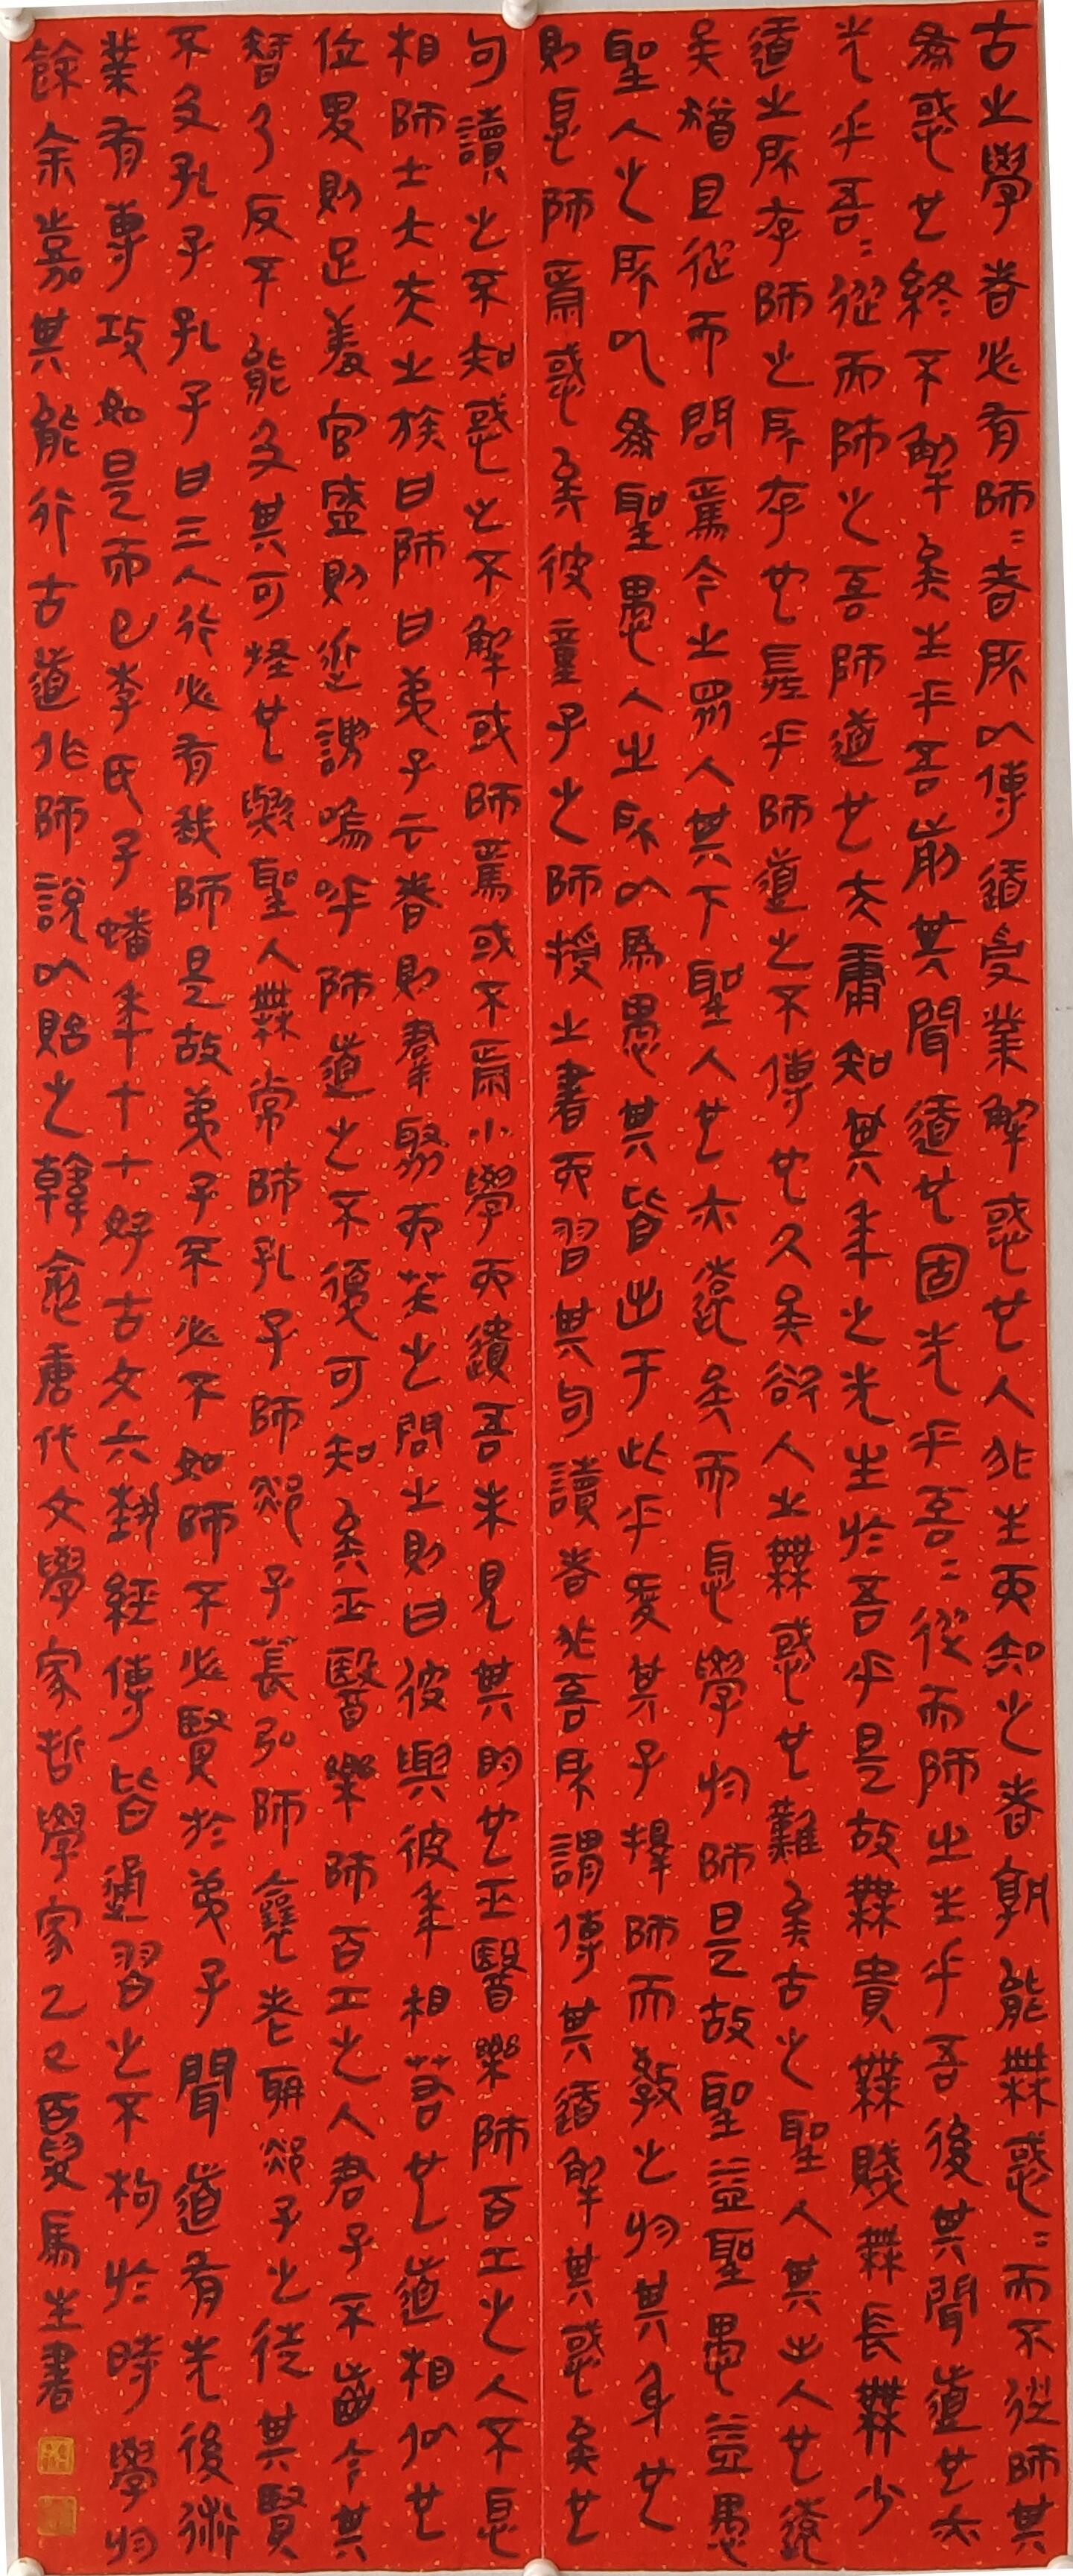 古之學者必有師=者所以傳道受業解惑也人非生而知之者孰能無惑=而不從師其
爲惑也終不解矣生乎吾前其聞道也固先乎吾=從而師之生乎吾後其聞道也亦
先乎吾=從而師之吾師道也夫庸知其年之先生於吾乎是故無貴無賤無長無少
道之所存師之所存也嗟乎師道之不傳也久矣欲人之無惑也難矣古之聖人其出人也遠
矣猶且從而問焉今之眾人其下聖人也亦遠矣而恥學於師是故聖益聖愚益愚
聖人之所以爲聖愚人之所以爲愚其皆出于此乎愛其子擇師而教之於其身也
則恥師焉惑矣彼童子之師授之書而習其句讀者非吾所謂傳其道解其惑矣也
句讀之不知惑之不解或師焉或不焉小學而遺吾未見其明也巫醫樂師百工之人不恥
相師士大夫之族曰師曰弟子云者則羣聚而笑之問之則曰彼與彼年相若也道相似也
位卑則足羞官盛則近諛嗚呼師道之不復可知矣巫醫樂師百工之人君子不齒今其
智乃反不能及其可怪也歟聖人無常師孔子師郯子萇弘師襄老聃郯子之徒其賢
不及孔子孔子曰三人行必有我師是故弟子不必不如師不必賢於弟子聞道有先後術
業有專攻如是而已李氏子蟠年十七好古文六藝經傳皆通習之不拘於時學於
餘余嘉其能行古道作師說以貽之韓愈唐代文學家哲學家乙巳叟馬生書